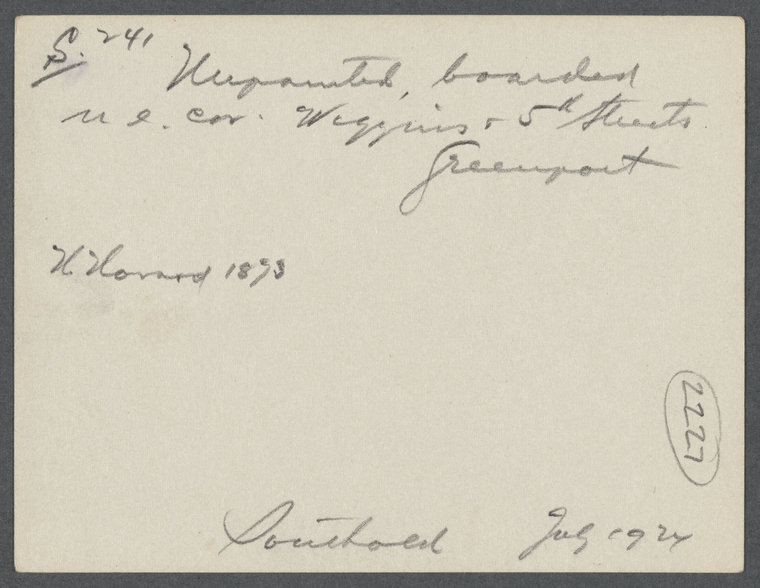 S. 241 Unpainted, boarded
n e. cor. Wiggins & 5th Streets
Greenport
H. Howard 1873
2227
Southold July 1924